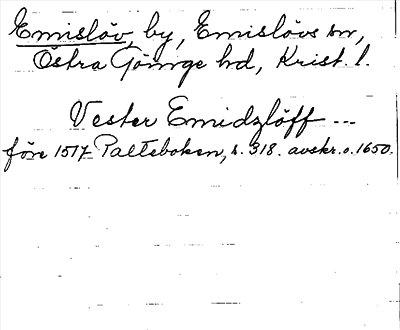 Emislöv, by, Emislövs sn,
Östra Göinge hd, Krist. l.
Vester Emidzlöff ---
före 1517 Palteboken, s. 318. avskr. o. 1650.